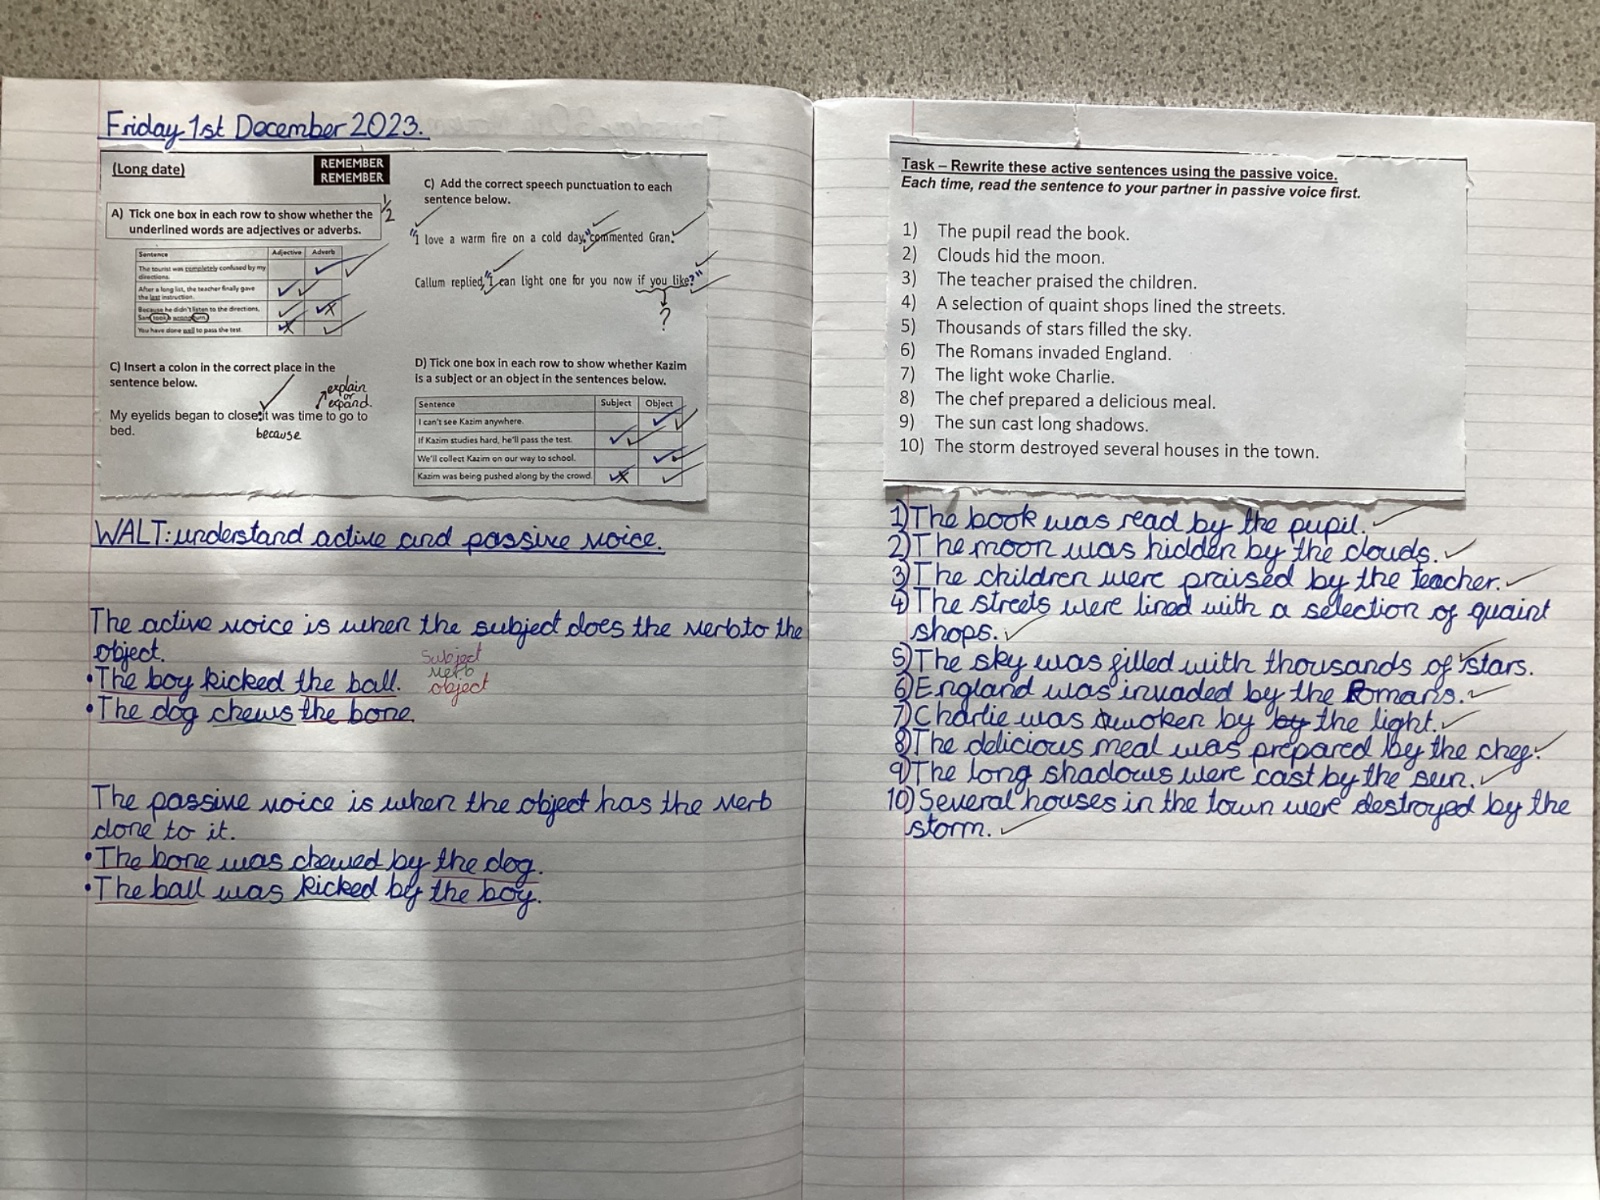 Friday 1st December 2023.
(Long date)
REMEMBER
REMEMBER
A) Tick one box in each row to show whether the
underlined words are adjectives or adverbs.
1/2
Sentence Adjective Adverb
The tourist was completely confused by my
directions.
After a long list, the teacher finally gave
the last instruction.
Because he didn't listen to the directions,
Sam took wrong turn.
You have done well to pass the test.
C) Insert a colon in the correct place in the
sentence below.
explain
or
expand.
My eyelids began to close: it was time to go to
bed.
because
C) Add the correct speech punctuation to each
sentence below.
"I love a warm fire on a cold day," commented Gran.
Callum replied, "I can light one for you now if you like?"
?
D) Tick one box in each row to show whether Kazim
is a subject or an object in the sentences below.
Sentence Subject Object
I can't see Kazim anywhere.
If Kazim studies hard, he'll pass the test.
We'll collect Kazim on our way to school.
Kazim was being pushed along by the crowd
WALT: understand active and passive voice.
The active voice is when the subject does the verb to the
object.
Subject
verb
object
•The boy kicked the ball.
•The dog chews the bone.
The passive voice is when the object has the verb
done to it.
•The bone was chewed by the dog.
•The ball was kicked by the boy.
Task – Rewrite these active sentences using the passive voice.
Each time, read the sentence to your partner in passive voice first.
1) The pupil read the book.
2) Clouds hid the moon.
3) The teacher praised the children.
4) A selection of quaint shops lined the streets.
5) Thousands of stars filled the sky.
6) The Romans invaded England.
7) The light woke Charlie.
8) The chef prepared a delicious meal.
9) The sun cast long shadows.
10) The storm destroyed several houses in the town.
1) The book was read by the pupil.
2) The moon was hidden by the clouds.
3) The children were praised by the teacher.
4) The streets were lined with a selection of quaint
shops.
5) The sky was filled with thousands of stars.
6) England was invaded by the Romans.
7) Charlie was awoken by by the light.
8) The delicious meal was prepared by the chef.
9) The long shadows were cast by the sun.
10) Several houses in the town were destroyed by the
storm.